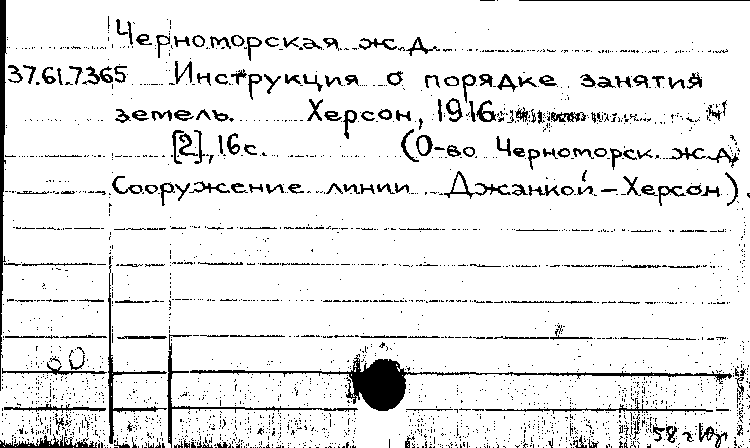 Черноморская ж.д.
37.61.7365 Инструкция о порядке занятия
земель. Херсон, 1916
[2], 16 с. (О-во Черноморск. ж.д.
Сооружение линии Джанкой – Херсон).